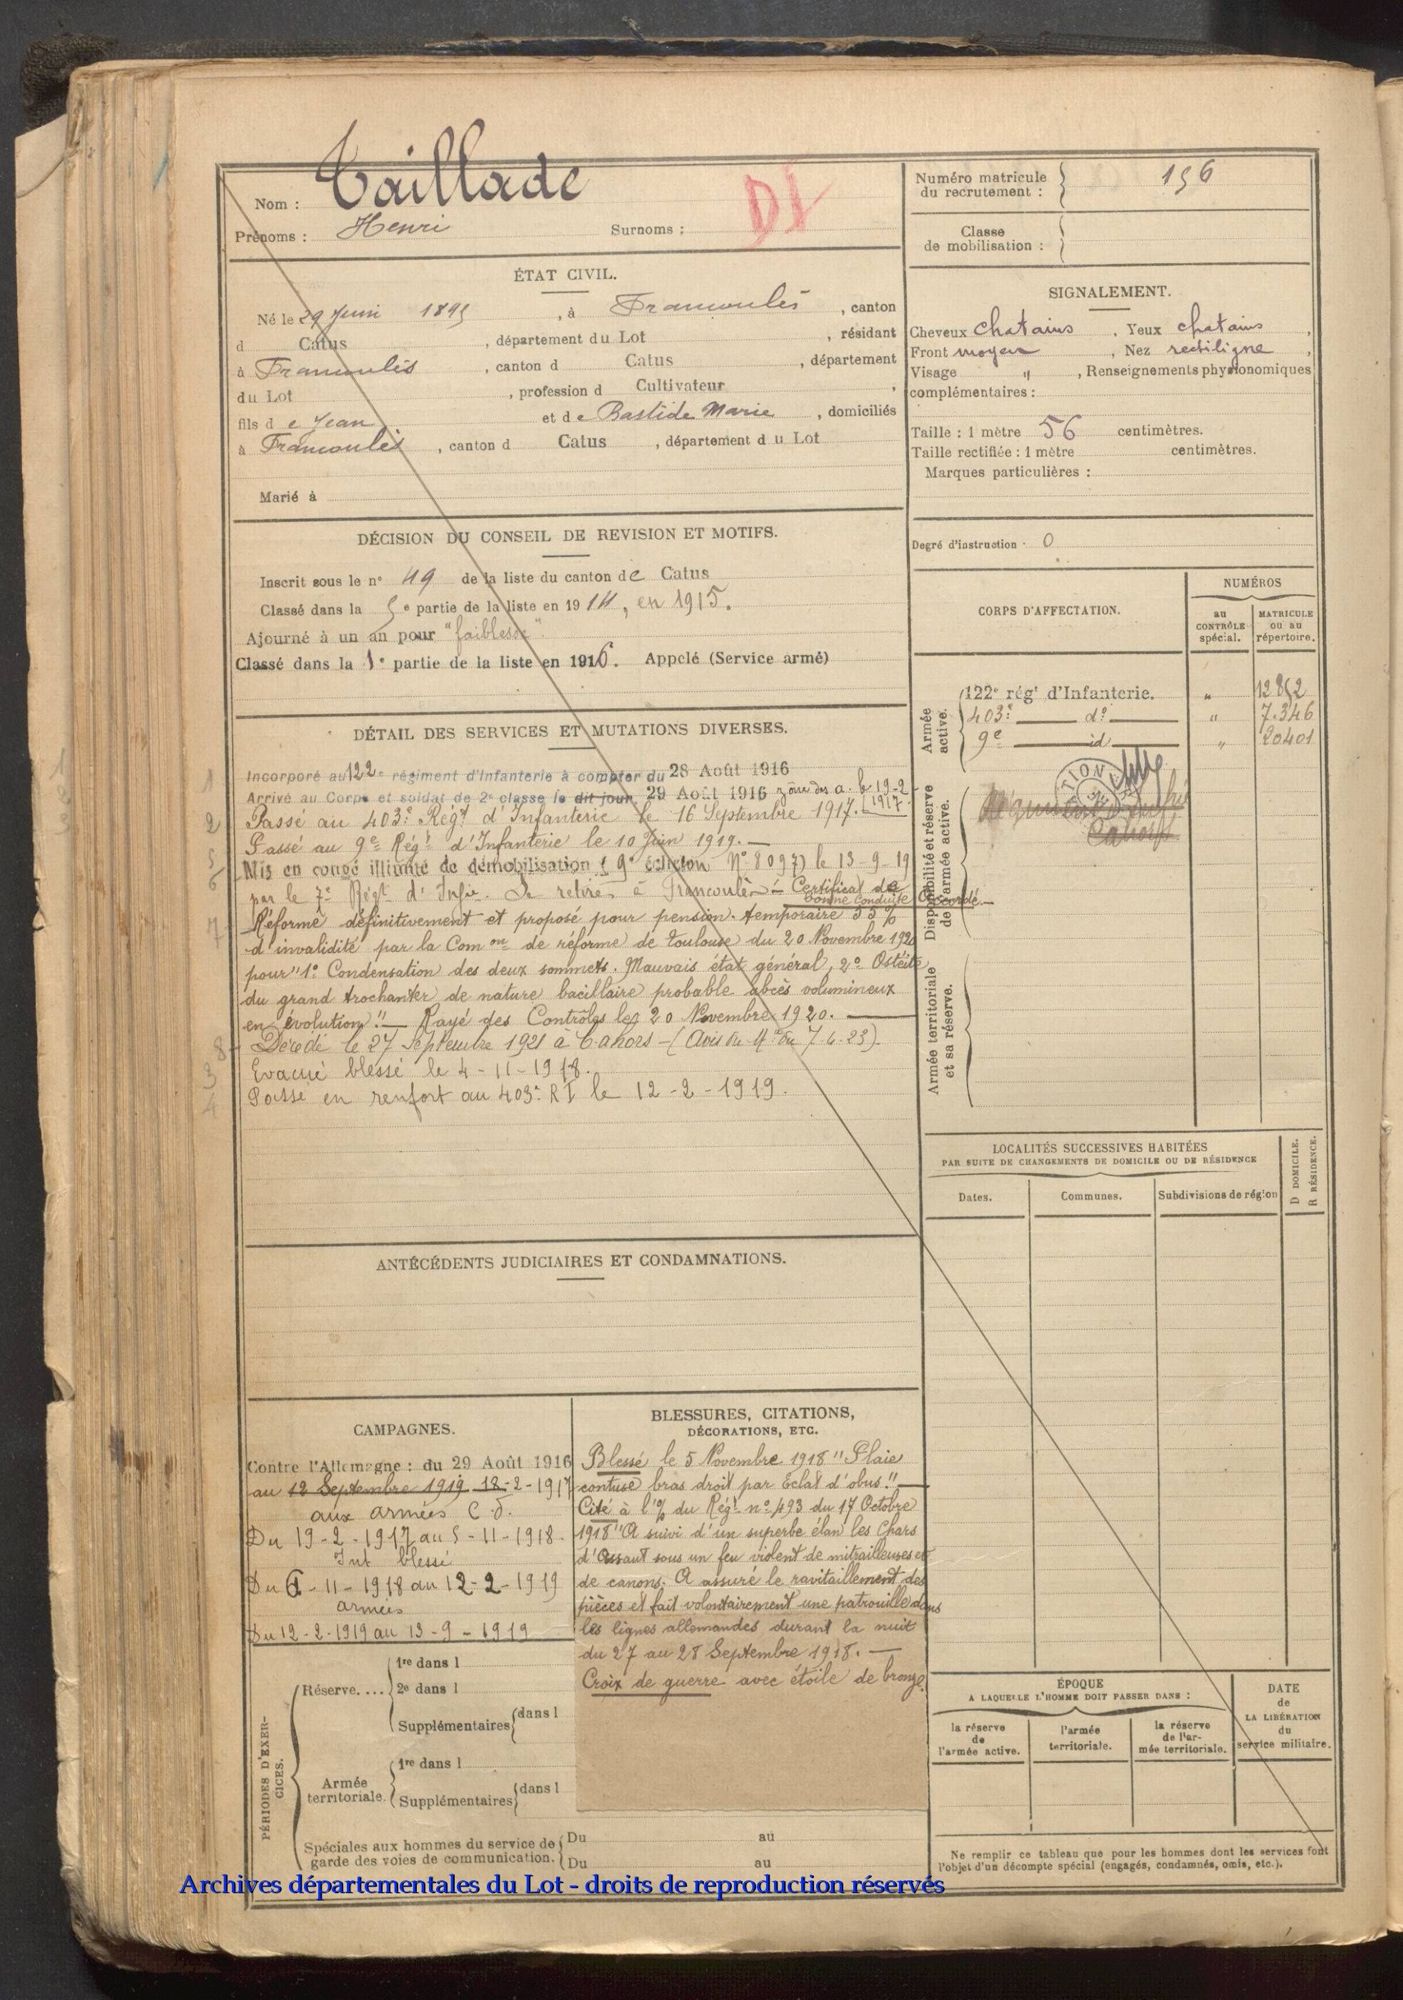 Taillade
Nom :
Prénoms : Henri
Surnoms :
DI
Numéro matricule
du recrutement :
156
Classe
de mobilisation :
ÉTAT CIVIL.
Né le 29 Juin 1895, à Francoulès, canton
d Catus, département du Lot, résidant
à Francoulès, canton d Catus, département
du Lot, profession d Cultivateur
fils d e Jean et d e Bastide Marie, domiciliés
à Francoulès, canton d Catus, département d u Lot
Marié à
SIGNALEMENT.
Cheveux chatains, Yeux chatains,
Front moyen, Nez rectiligne,
Visage ", Renseignements physionomiques
complémentaires :
Taille : 1 mètre 56 centimètres.
Taille rectifiée : 1 mètre centimètres.
Marques particulières :
Degré d'instruction : 0
DÉCISION DU CONSEIL DE REVISION ET MOTIFS.
Inscrit sous le n° 49 de la liste du canton de Catus
Classé dans la 5e partie de la liste en 1914, en 1915.
Ajourné à un an pour "faiblesse".
Classé dans la 1e partie de la liste en 1916. Appelé (Service armé)
CORPS D'AFFECTATION.
NUMÉROS
au
CONTRÔLE
spécial.
MATRICULE
ou au
répertoire.
Armée
active.
122e rég' d'Infanterie. " 12852
403e d° " 7.346
9e id " 20401
Disponibilité et réserve
de l'armée active.
Cahors
Armée territoriale
et sa réserve.
DÉTAIL DES SERVICES ET MUTATIONS DIVERSES.
1 Incorporé au 122e régiment d'Infanterie à compter du 28 Août 1916
Arrivé au Corps et soldat de 2e classe le dit jour. 29 Août 1916 zône des a. le 19-2-1917.
2 Passé au 403e Régt d'Infanterie le 16 Septembre 1917.
5 Passé au 9e Régt d'Infanterie le 10 Juin 1919.—
6 Mis en congé illimité de démobilisation (9e échelon N° 8097) le 13-9-19
par le 7e Régt d'Infie. Se retire à Francoulès.— Certificat de
bonne conduite accordé.—
7 Réformé définitivement et proposé pour pension temporaire 55%
d'invalidité par la Comon de réforme de Toulouse du 20 Novembre 1920
pour "1° Condensation des deux sommets. Mauvais état général, 2° Ostéite
du grand trochanter de nature bacillaire probable abcès volumineux
en évolution".— Rayé des Contrôles le 20 Novembre 1920.—
8 Décédé le 27 Septembre 1921 à Cahors — (Avis du Mre du 7.6.23).
3 Evacué blessé le 4-11-1918.
4 Passé en renfort au 403e RI le 12-2-1919.
LOCALITÉS SUCCESSIVES HABITÉES
PAR SUITE DE CHANGEMENTS DE DOMICILE OU DE RÉSIDENCE
Dates.
Communes.
Subdivisions de région
D DOMICILE.
R RÉSIDENCE.
ANTÉCÉDENTS JUDICIAIRES ET CONDAMNATIONS.
CAMPAGNES.
Contre l'Allemagne : du 29 Août 1916
au 12 Septembre 1919 18-2-1917
aux armées C.d.
Du 19-2-1917 au 5-11-1918.
Int. blessé
Du 6-11-1918 au 12-2-1919
armées
Du 12-2-1919 au 13-9-1919
BLESSURES, CITATIONS,
DÉCORATIONS, ETC.
Blessé le 5 Novembre 1918 "Plaie
contuse bras droit par Eclat d'obus".—
Cité à l'% du Régt n° 493 du 17 Octobre
1918 "A suivi d'un superbe élan les Chars
d'Assaut sous un feu violent de mitrailleuses et
de canons. A assuré le ravitaillement des
pièces et fait volontairement une patrouille dans
les lignes allemandes durant la nuit
du 27 au 28 Septembre 1918.—
Croix de guerre avec étoile de bronze
PÉRIODES D'EXER-
CICES.
Réserve....
1re dans l
2e dans l
Supplémentaires dans l
Armée
territoriale.
1re dans l
Supplémentaires dans l
Spéciales aux hommes du service de
garde des voies de communication.
Du au
Du au
ÉPOQUE
A LAQUELLE L'HOMME DOIT PASSER DANS :
la réserve
de
l'armée active.
l'armée
territoriale.
la réserve
de l'ar-
mée territoriale.
DATE
de
LA LIBÉRATION
du
service militaire.
Ne remplir ce tableau que pour les hommes dont les services font
l'objet d'un décompte spécial (engagés, condamnés, omis, etc.).
Archives départementales du Lot - droits de reproduction réservés